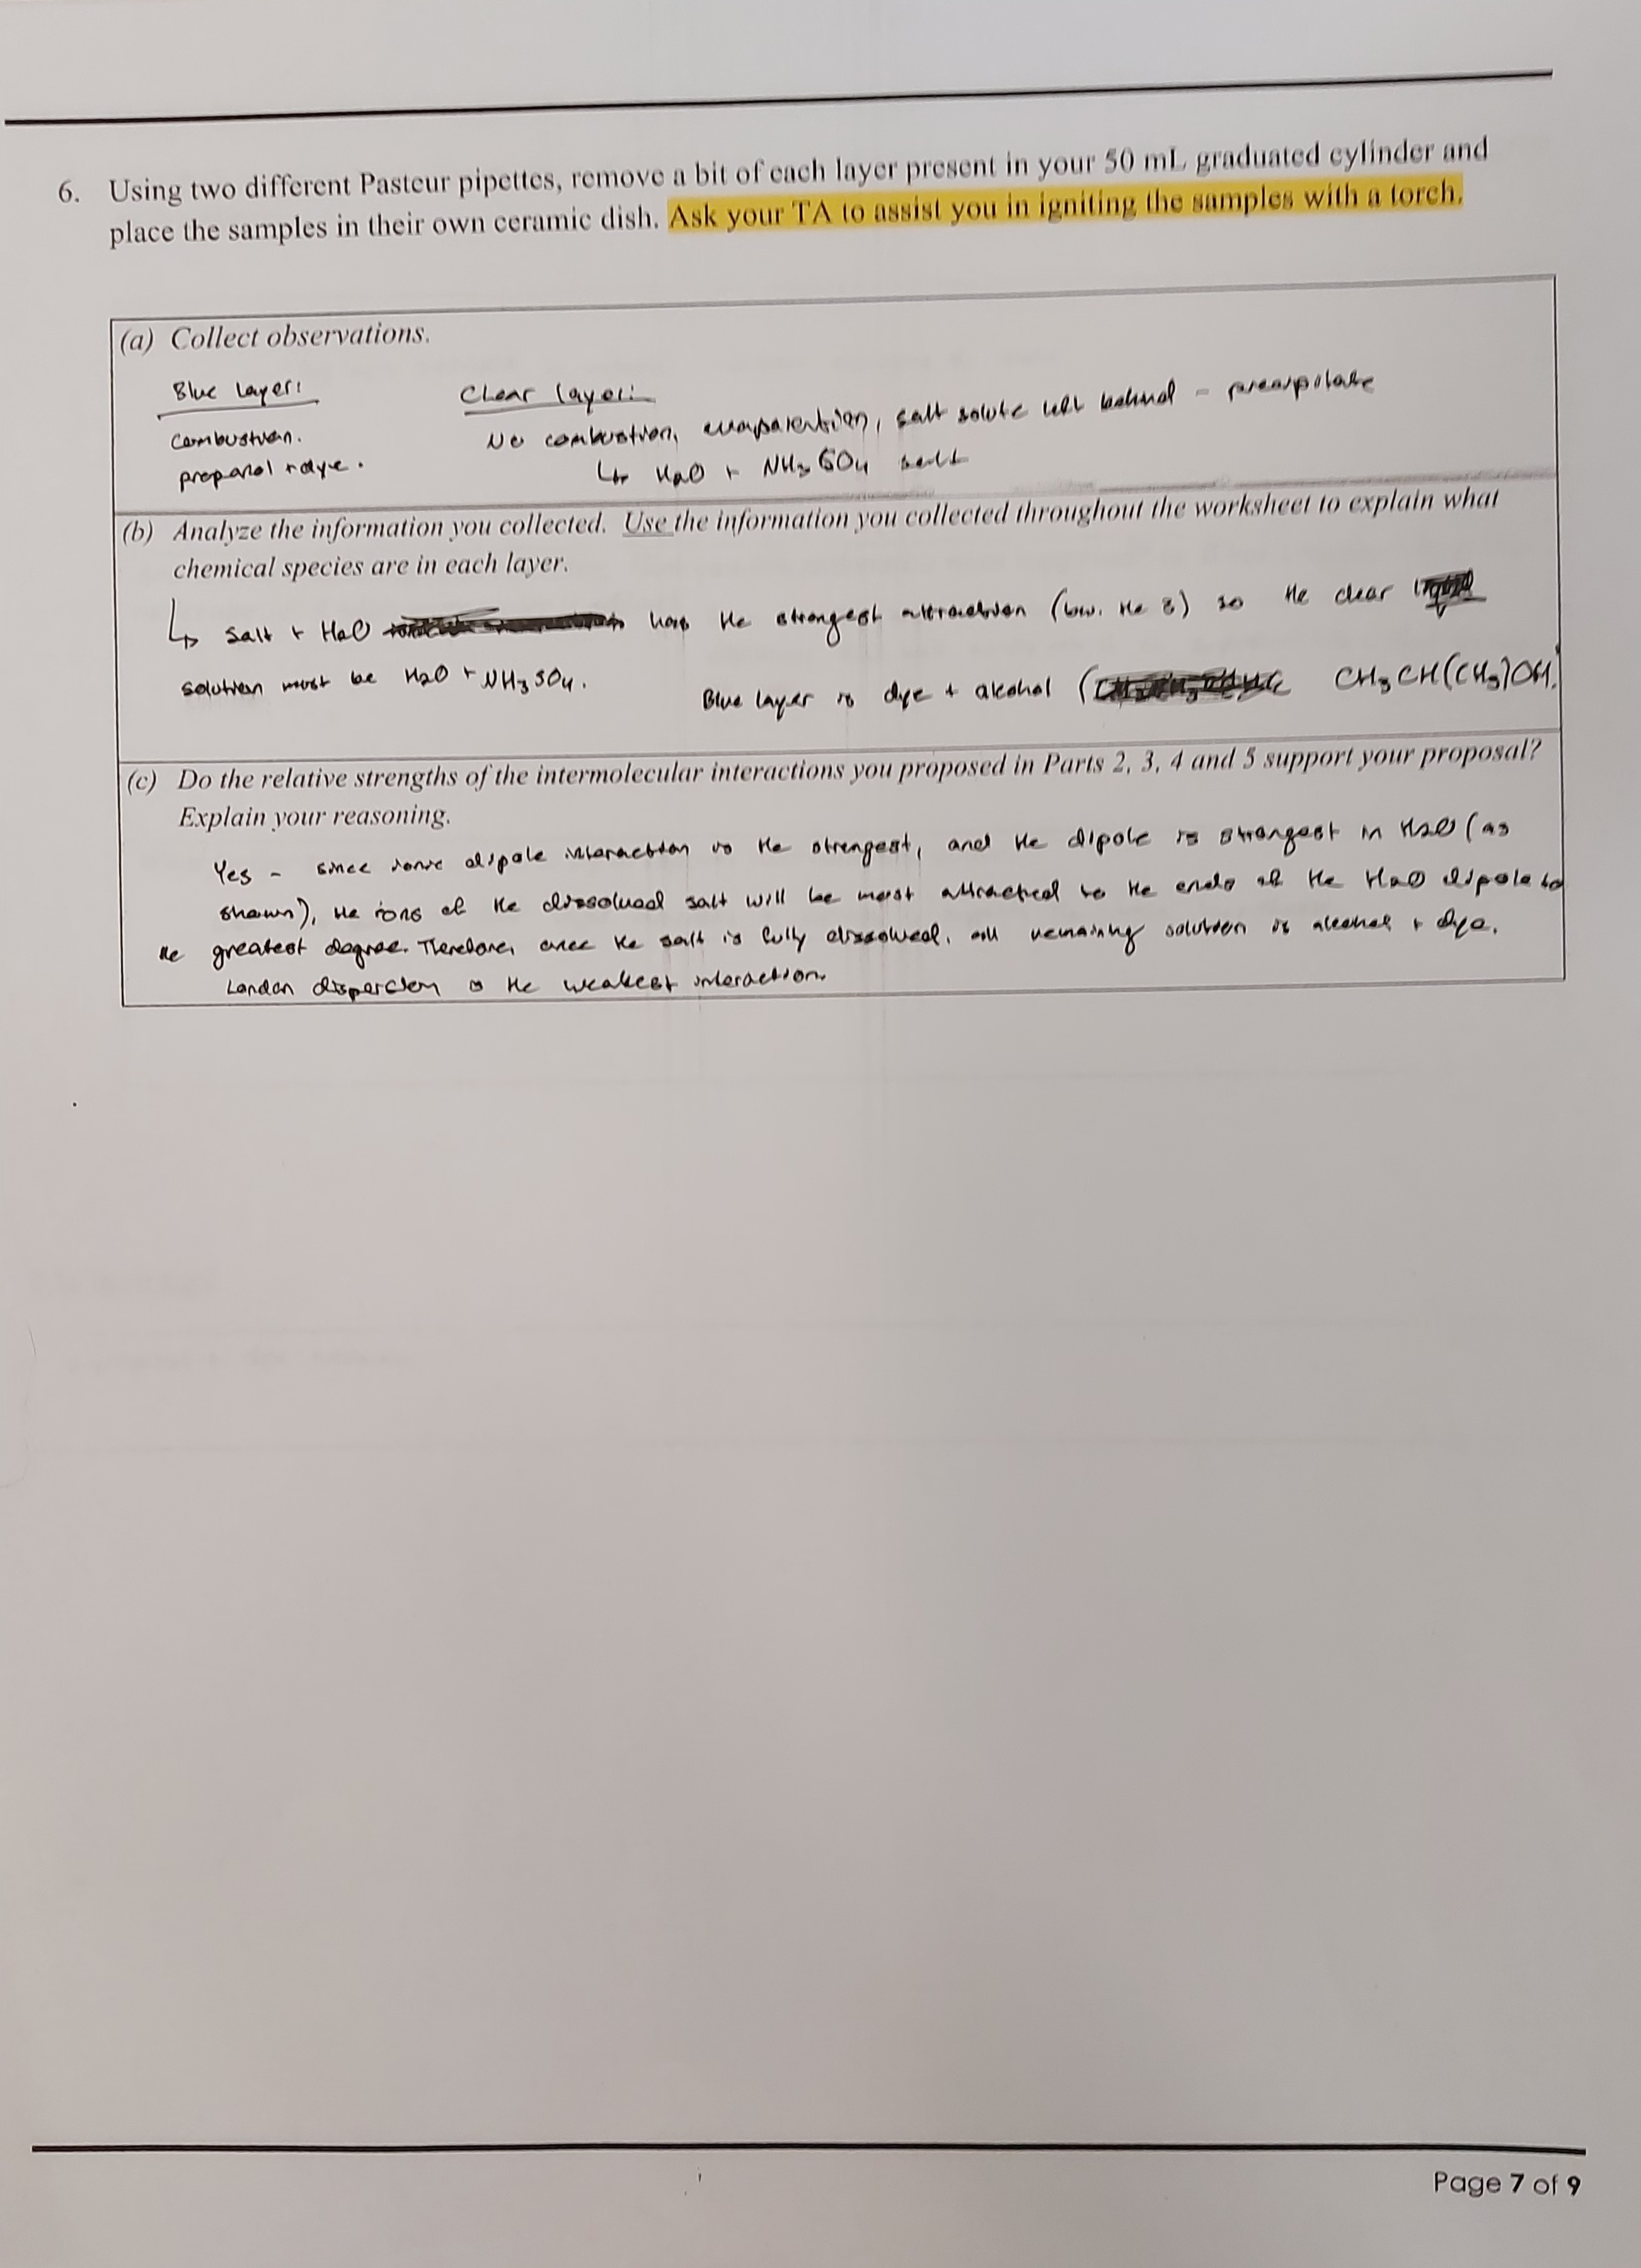 6. Using two different Pasteur pipettes, remove a bit of each layer present in your 50 mL graduated cylinder and
place the samples in their own ceramic dish. Ask your TA to assist you in igniting the samples with a torch.
(a) Collect observations.
Blue Layer: Clear layer:
Combustion. No combustion, evaporation, salt solute left behind -
propanol + dye. ↳ H2O + NH3SO4 salt
(b) Analyze the information you collected. Use the information you collected throughout the worksheet to explain what
chemical species are in each layer.
↳ Salt + H2O has the strongest attraction (low. the ) so the clear
solution must be H2O + NH3SO4. Blue layer is dye + alcohol ( CH3CH(CH3)OH.
(c) Do the relative strengths of the intermolecular interactions you proposed in Parts 2, 3, 4 and 5 support your proposal?
Explain your reasoning.
Yes - since ionic dipole interaction is the strongest, and the dipole is strongest in H2O (as
shown), the ions of the dissolved salt will be most attracted to the ends of the H2O dipole to
the greatest degree. Therefore, once the salt is fully dissolved, all remaining solution is alcohol + dye.
London dispersion is the weakest interaction.
Page 7 of 9